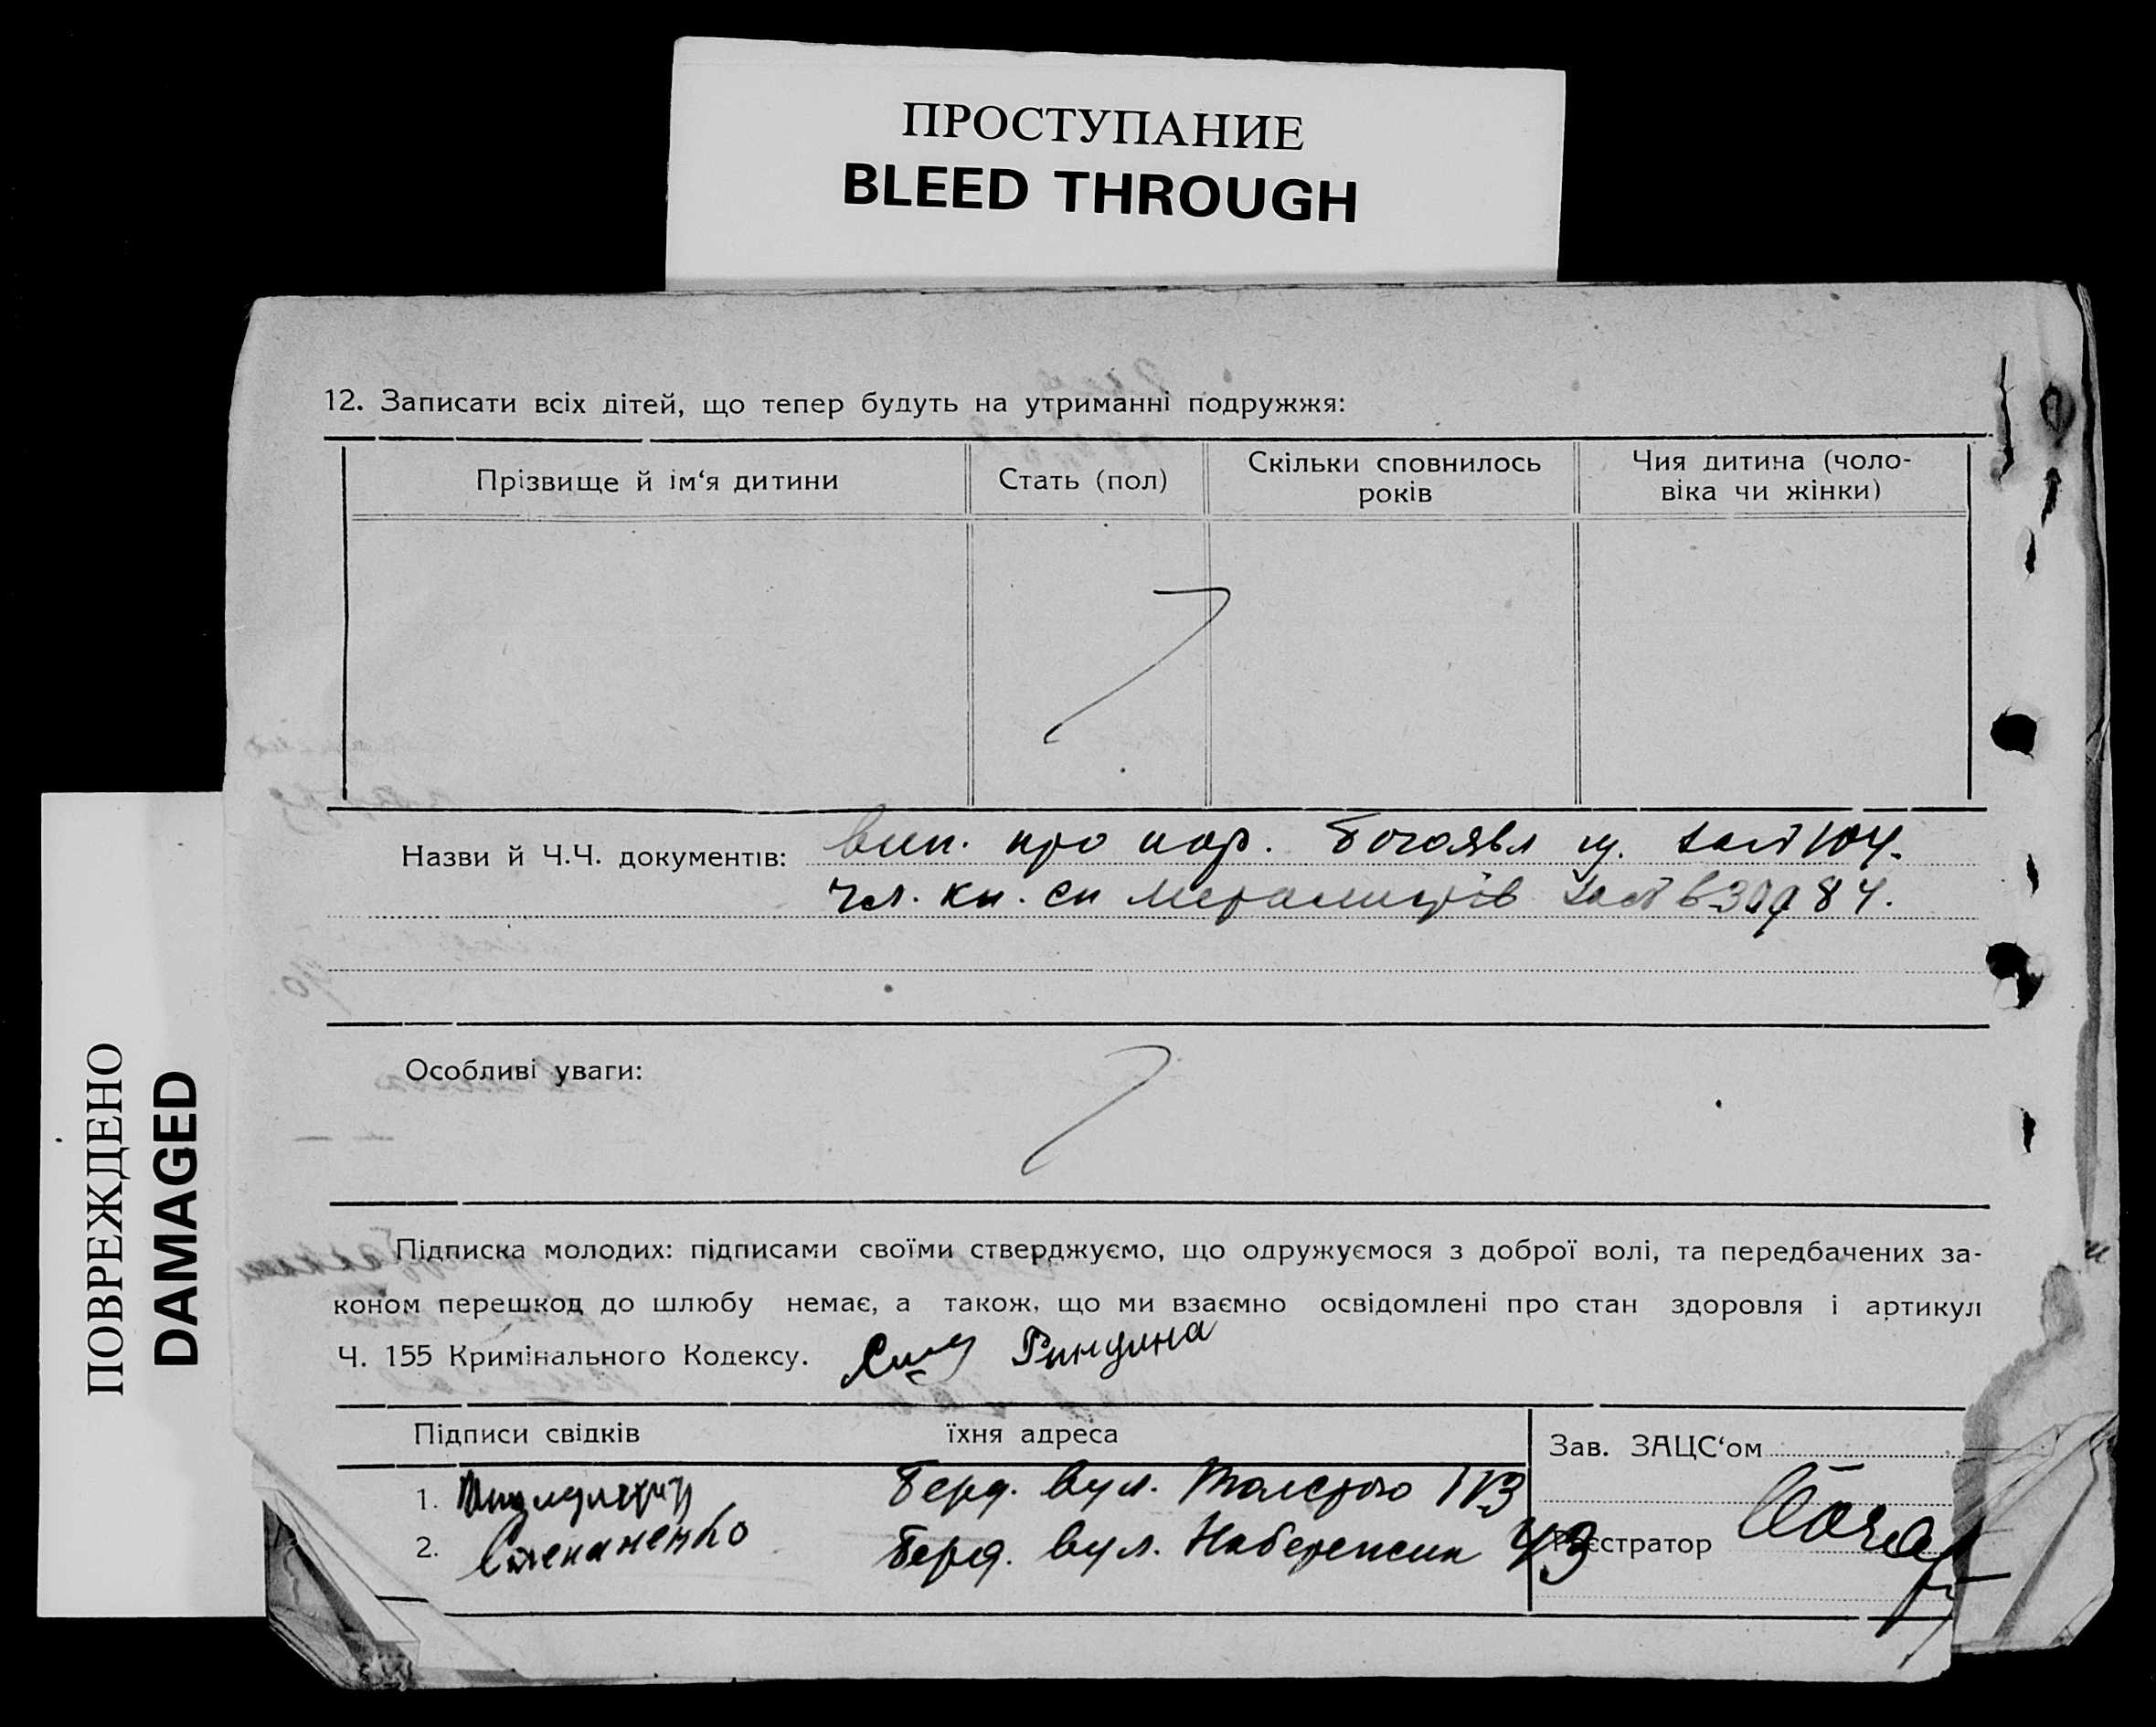 ПРОСТУПАНИЕ
BLEED THROUGH
ПОВРЕЖДЕНО
DAMAGED
12. Записати всіх дітей, що тепер будуть на утриманні подружжя:
Прізвище й ім‘я дитини
Стать (пол)
Скільки сповнилось
років
Чия дитина (чоло-
віка чи жінки)
Назви й Ч.Ч. документів: вип. про нар.
чл. кн. сп 84.
Особливі уваги:
Підписка молодих: підписами своїми стверджуємо, що одружуємося з доброї волі, та передбачених за-
коном перешкод до шлюбу немає, а також, що ми взаємно освідомлені про стан здоровля і артикул
Ч. 155 Кримінального Кодексу.
Підписи свідків
їхня адреса
Зав. ЗАЦС‘ом
1. Берд. вул. Толстого
2. Степаненко Берд. вул. 43
Реєстратор